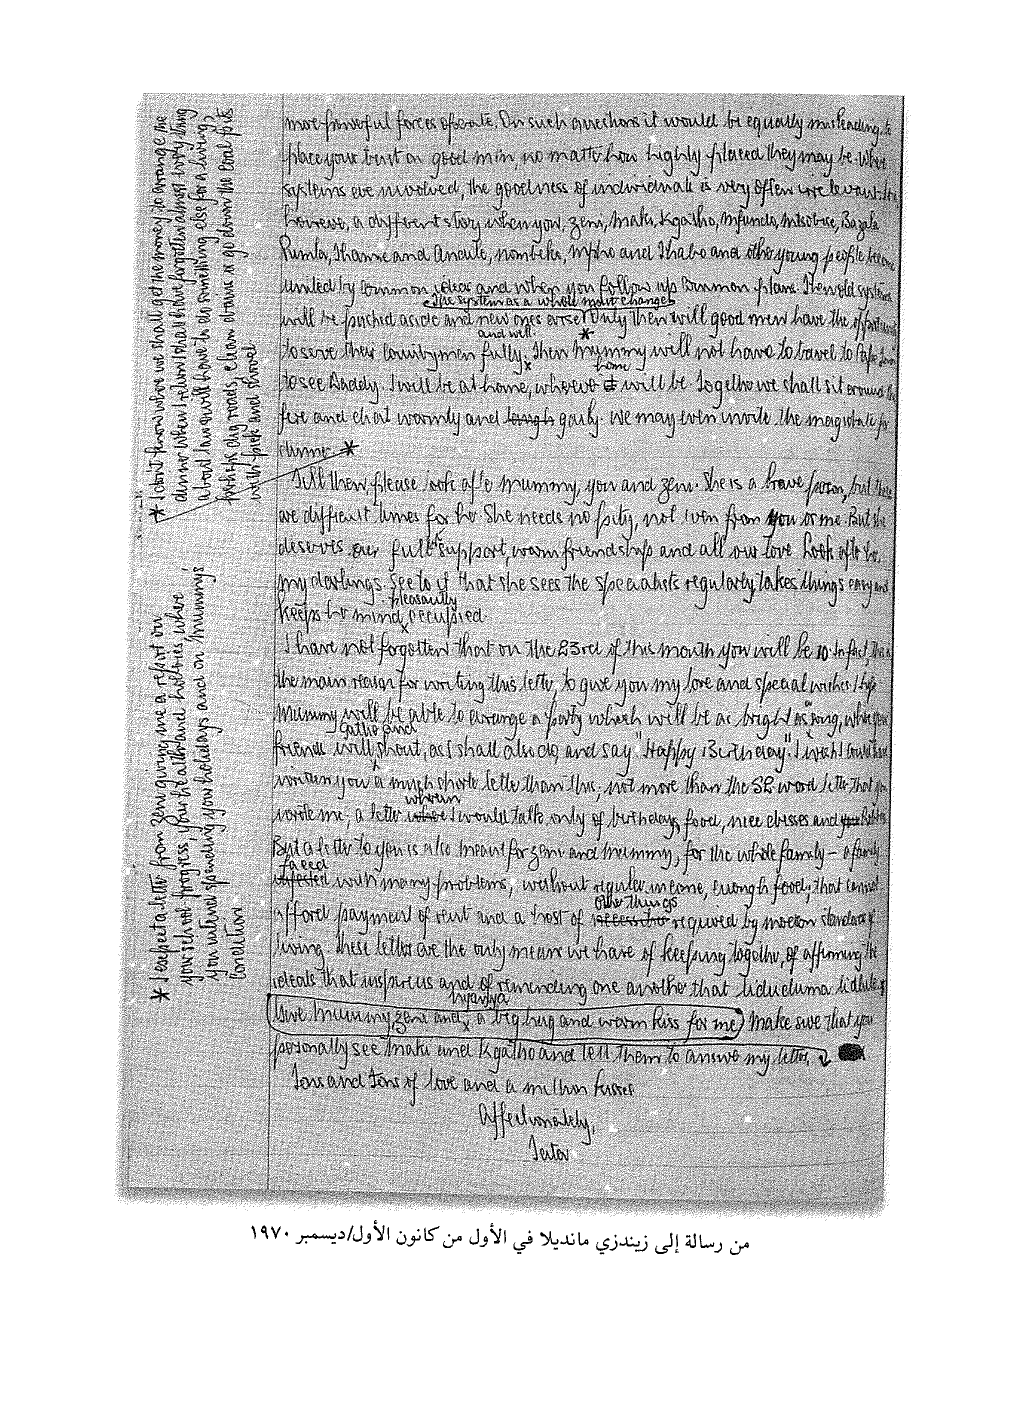 more powerful forces operate. On such questions it would be equally misleading to
place your trust on good men, no matter how highly placed they may be. When
systems are involved, the goodness of individuals is very often irrelevant. It is
however, a different story when you, Zeni, Maki, Kgatho, Mfundo, Motsobise, Bazala
Rumla, Thamie and Andile, Nombeko, Mpho and Thabo and other young people become
united by common ideas and when you follow up common plans. Then old systems
The system as a whole must change
will be pushed aside and new ones arise. Only then will good men have the opportunity
and well
to serve their countrymen fully. Then Mummy will not have to travel to Cape Town
home
to see Daddy. I will be at home, wherever it will be. Together we shall sit around the
fire and chat warmly and laugh gaily. We may even invite the magistrate for
dinner. *
Till then, please look after Mummy, you and Zeni. She is a brave person, but these
are difficult times for her. She needs no pity, not even from you or me. But she
deserves our full support, warm friendship and all our love. Look after her,
my darlings. See to it that she sees the specialists regularly, takes things easy and
pleasantly
keeps her mind occupied.
I have not forgotten that on the 23rd of this month you will be 10. In fact, this is
the main reason for writing this letter, to give you my love and special wishes. I hope
Mummy will be able to arrange a party which will be as bright as song, where your
gather and
friends will shout, as I shall also do, and say "Happy Birthday". I wish I could have
written you a much shorter letter than this; not more than the 52 word letter that you
wherein
wrote me; a letter where I would talk only of birthdays, food, nice dresses and
But a letter to you is also meant for Zeni and Mummy, for the whole family - a family
faced
with many problems, without regular income, enough food; that cannot
other things
afford payment of rent and a host of required by modern standards of
living. These letters are the only means we have of keeping together, of affirming the
ideals that inspire us and of reminding one another that
nyanya
Give Mummy, Zeni and a big hug and warm kiss for me. Make sure that you
personally see Maki and Kgatho and tell them to answer my letters.
Tons and tons of love and a million kisses
Affectionately,
Tata
* I don't know where we shall get the money to arrange the
dinner. When I return I shall have forgotten almost everything
about law, will have to do something else for a living,
perhaps dig roads, clean drains or go down the coal pits
with pick and shovel
* I expect a letter from Zeni giving me a report on
your school progress, your health and hobbies where
you intend spending your holidays and on Mummy's
condition
من رسالة إلى زيندزي مانديلا في الأول من كانون الأول/ديسمبر ١٩٧٠